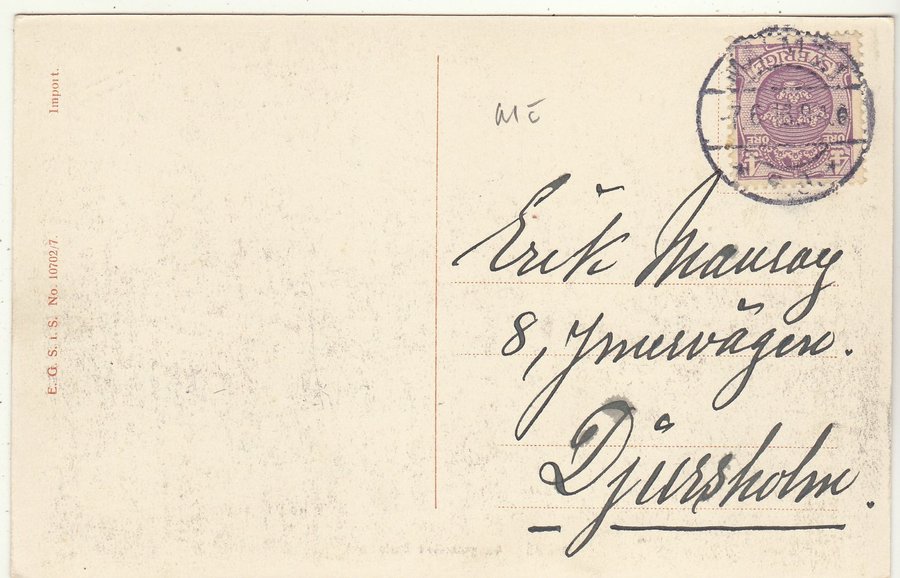 Import.
E. G. S. i. S. No. 10702/7.
SVERIGE
4 ÖRE ÖRE 4
Erik
8, Ymervägen.
Djursholm.